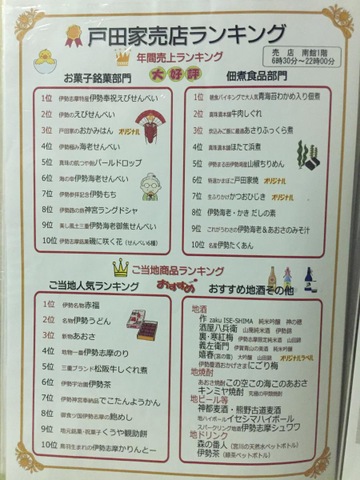 戸田家売店ランキング
年間売上ランキング
売店 南館1階
6時30分～22時00分
大好評
お菓子銘菓部門
1位 伊勢志摩特産伊勢奉祝えびせんべい
2位 伊勢のえびせんべい
3位 戸田家のおかみはん オリジナル
4位 伊勢極み海老せんべい
5位 真珠の肌つや飴パールドロップ
6位 海の幸伊勢海老せんべい
7位 伊勢参拝記念伊勢もち
8位 伊勢路の旅神宮ラングドシャ
9位 美し風土三重伊勢海老御焦せんべい
10位 伊勢志摩銘菓磯に咲く花(せんべい6種)
佃煮食品部門
1位 朝食バイキングで大人気青海苔わかめ入り佃煮
2位 真珠漬本舗牛肉しぐれ
3位 炊込みご飯に最適あさりふっくら煮
4位 真珠漬本舗ほたて浜煮
5位 伊勢まる田伊勢海産山椒ちりめん
6位 特選かまぼこ戸田家焼 オリジナル
7位 生ふりかけかつおひじき オリジナル
8位 伊勢海老・かき だしの素
9位 これがうわさの伊勢海老&あおさのみそ汁
10位 名産伊勢たくあん
ご当地商品ランキング
おすすめ
ご当地人気ランキング
1位 伊勢名物赤福
2位 名物伊勢うどん
3位 新物あおさ
4位 地物一番伊勢志摩のり
5位 三重ブランド松阪牛しぐれ煮
6位 伊勢平治煎伊勢茶
7位 伊勢神宮奉納品でこたんようかん
8位 御食つ国伊勢志摩の鮑めし
9位 地元銘菓・祝菓子くうや観助餅
10位 鳥羽生まれの伊勢志摩かりんとー
おすすめ地酒その他
地酒
作 zaku ISE-SHIMA 純米吟醸 神の穂
酒屋八兵衛 山廃純米酒 伊勢錦
裏・寒紅梅 伊勢志摩限定純米酒 山田錦
義左衛門 伊賀青山の美酒 純米吟醸
嬉春(菜の雪) 大吟醸 山田錦 オリジナルラベル
伊勢醤油おかげさまにごり梅
地焼酎
あおさ焼酎この空この海このあおさ
キンミヤ焼酎 究極の甲類焼酎
地ビール等
神都麦酒・熊野古道麦酒
地ハイボールイセシマハイボール
スパークリング地酒伊勢志摩シュワワ
地ドリンク
森の番人 (宮川の天然水ペットボトル)
伊勢茶 (緑茶ペットボトル)